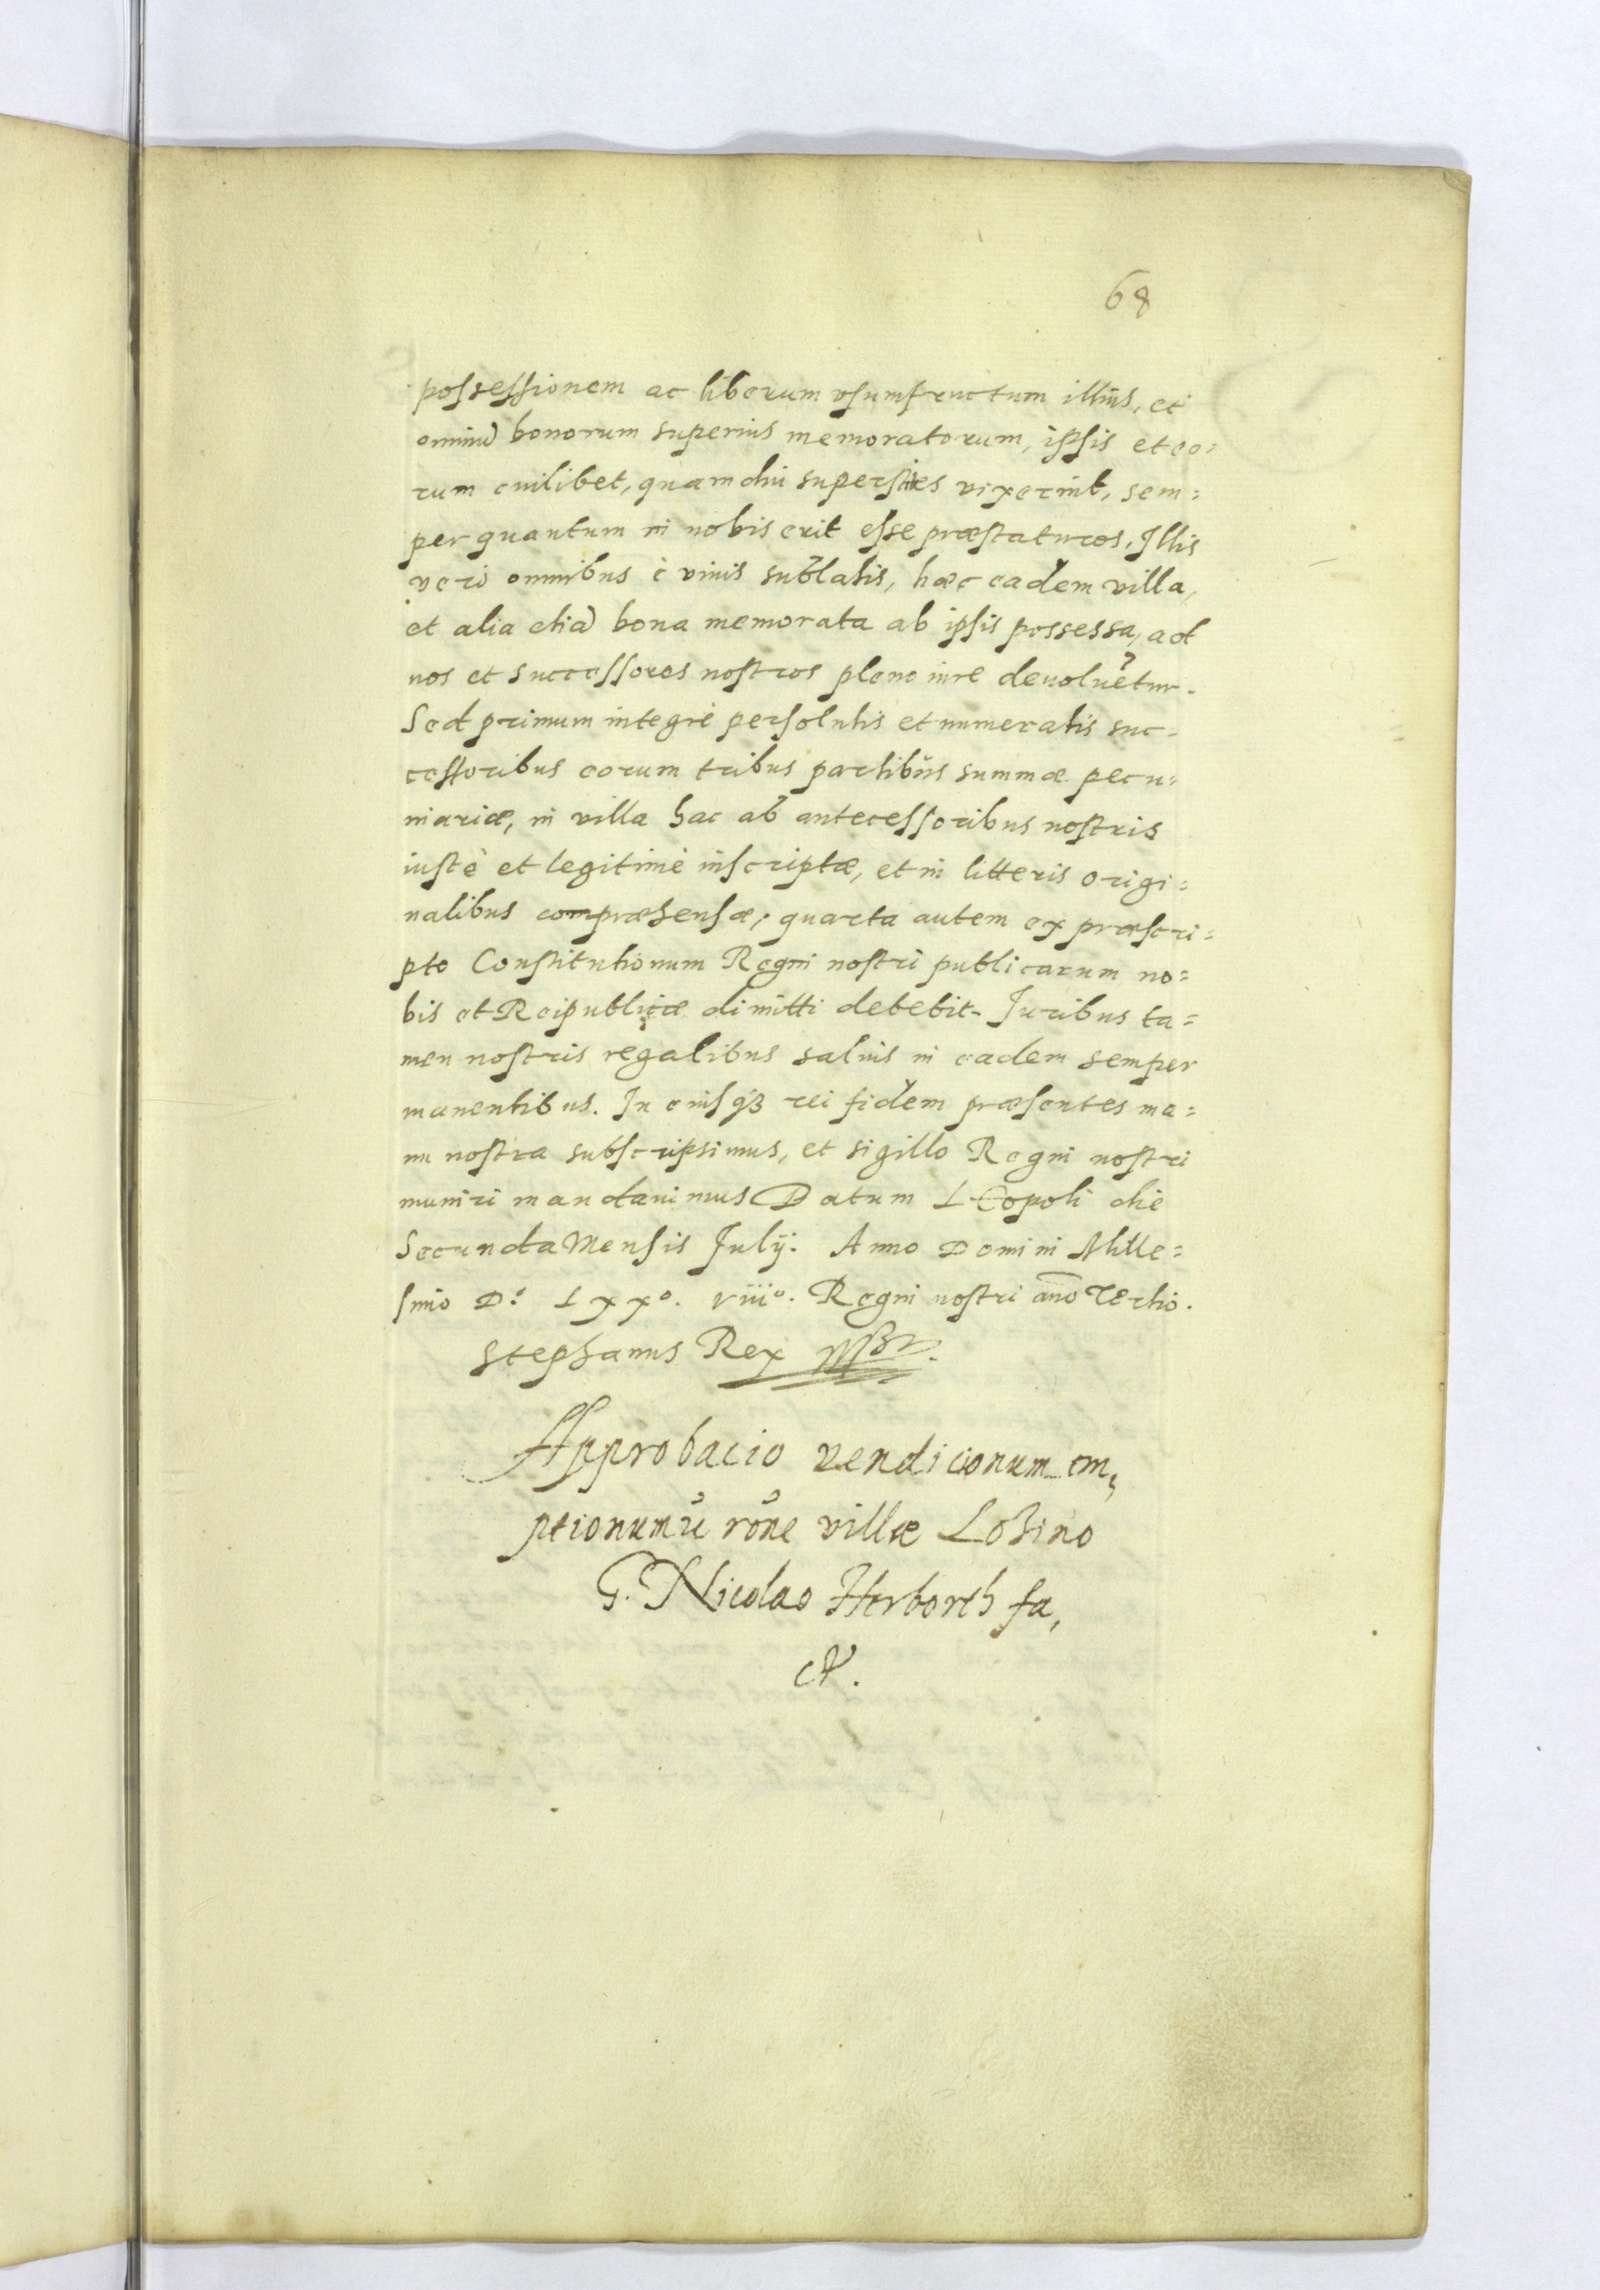 68
possessionem ac liberum vsumfructum illius, et
omniũ bonorum superius memoratorum, ipsis et eo=
rum cuilibet, quamdiu superstes vixerint, sem=
per quantum in nobis erit esse præstaturos. Illis
verò omnibus è viuis sublatis, hæc eadem villa,
et alia etiã bona memorata ab ipsis possessa, ad
nos et successores nostros pleno iure deuoluẽtur.
Sed primum integrè persolutis et numeratis suc=
cessoribus eorum tribus partibus summæ pecu=
niariæ, in villa hac ab antecessoribus nostris
iustè et legitimè inscriptæ, et in litteris origi=
nalibus compræhensæ, quarta autem ex præscri=
pto Constitutionum Regni nostri publicarum no=
bis et Reipublicæ dimitti debebit. Iuribus ta=
men nostris regalibus saluis in eadem semper
manentibus. In cuiusqȝ rei fidem præsentes ma=
nu nostra subscripsimus, et sigillo Regni nostri
muniri mandauimus Datum Leopoli die
Secunda Mensis Iulij. Anno Domini Mille=
simo D.º Lxxº. viiiº. Regni nostri año Tertio.
Stephanus Rex
Approbacio vendicionum em,
ptionumũ rõne villæ Lozino
G. Nicolao Herborth fa,
ct.